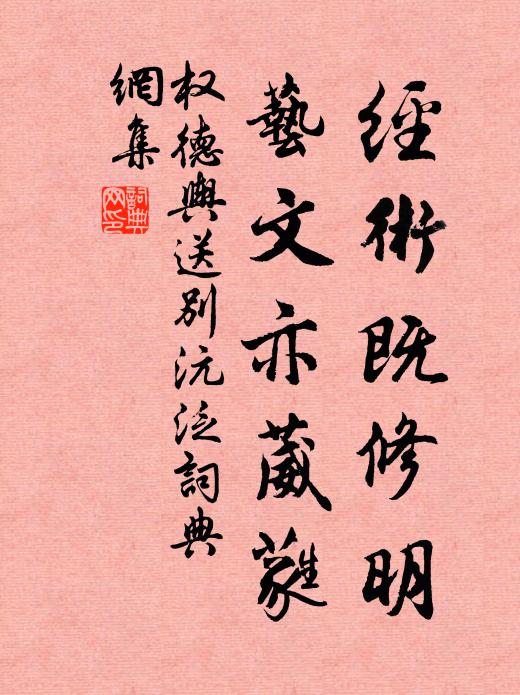 經術既修明
藝文亦葳蕤
权德輿送别沅泛詞典
網集
詞典网印